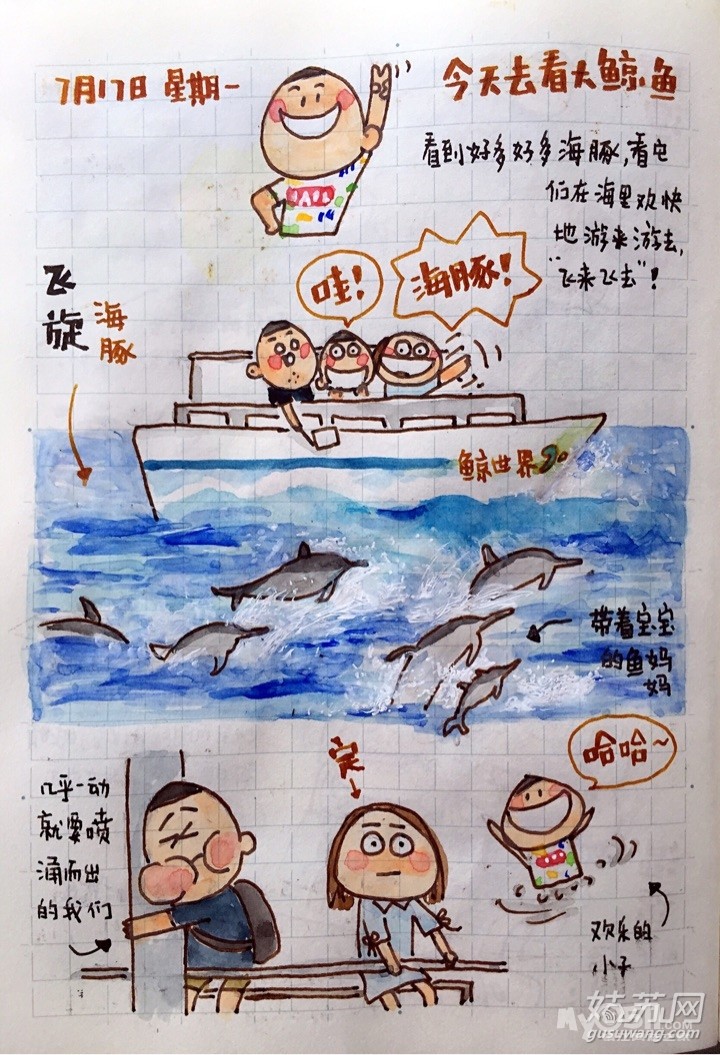 7月17日 星期一
今天去看大鲸鱼
看到好多好多海豚,看它
们在海里欢快
地游来游去,
“飞来飞去”!
飞旋
海豚
哇!
海豚!
鲸世界
带着宝宝
的鱼妈
妈
几乎一动
就要喷
涌而出
的我们
定
哈哈~
欢乐的
小子
姑苏网
gusuwang.com